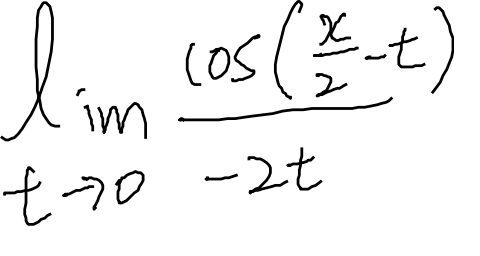 lim_{t→0} \frac{cos(\frac{x}{2}-t)}{-2t}